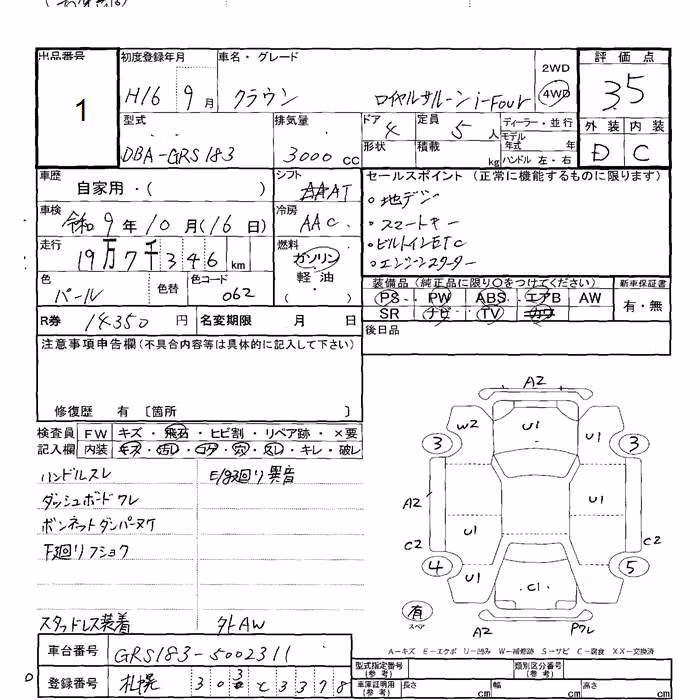 出品番号 初度登録年月 車名・グレード 評価点
1 H16 9月 クラウン ロイヤルサルーン i-Four 2WD 4WD 3.5
型式 排気量 ドア 定員 ディーラー・並行 外装 内装
DBA-GRS183 3000cc 4 5人 モデル年式 年 D C
形状 積載 kg ハンドル 左・右
車歴 自家用・( ) シフト AAAT
セールスポイント (正常に機能するものに限ります)
車検 令和9年10月(16日) 冷房 AAC
・地デジ
・スマートキー
・ビルトインETC
・エンジンスターター
走行 19万7千346km 燃料 ガソリン 軽油 ( ・ )
色 パール 色替 色コード 062
装備品(純正品に限り〇をつけてください) 新車保証書
PS PW ABS エアB AW 有・無
SR ナビ TV
R券 14350円 名変期限 月 日
後日品
注意事項申告欄(不具合内容等は具体的に記入して下さい)
修復歴 有 〔箇所 〕
検査員 FW キズ・飛石・ヒビ割・リペア跡・×要
記入欄 内装 キズ・汚レ・コゲ・穴・スレ・キレ・破レ
ハンドルスレ E/g廻り異音
ダッシュボードワレ
ボンネットダンパーヌケ
下廻りフショク
スタッドレス装着 夏タイヤAW
A2
W2 U1 U1
3 3
A2 U1
C2 U1 C2
4 5
U1 C1
有 スペア
A2 Pワレ
A-キズ E-エクボ U-凹み W-補修跡 S-サビ C-腐食 XX-交換済
車台番号 GRS183-5002311
登録番号 札幌 303 と 3378
型式指定番号(参考) 類別区分番号(参考)
車庫証明用(参考) 長さ cm 幅 cm 高さ cm